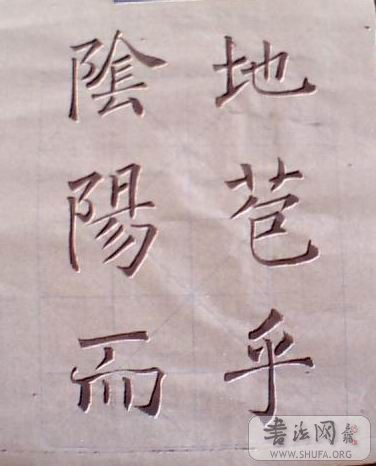 地苞乎
陰陽而
書法网
WWW.SHUFA.ORG